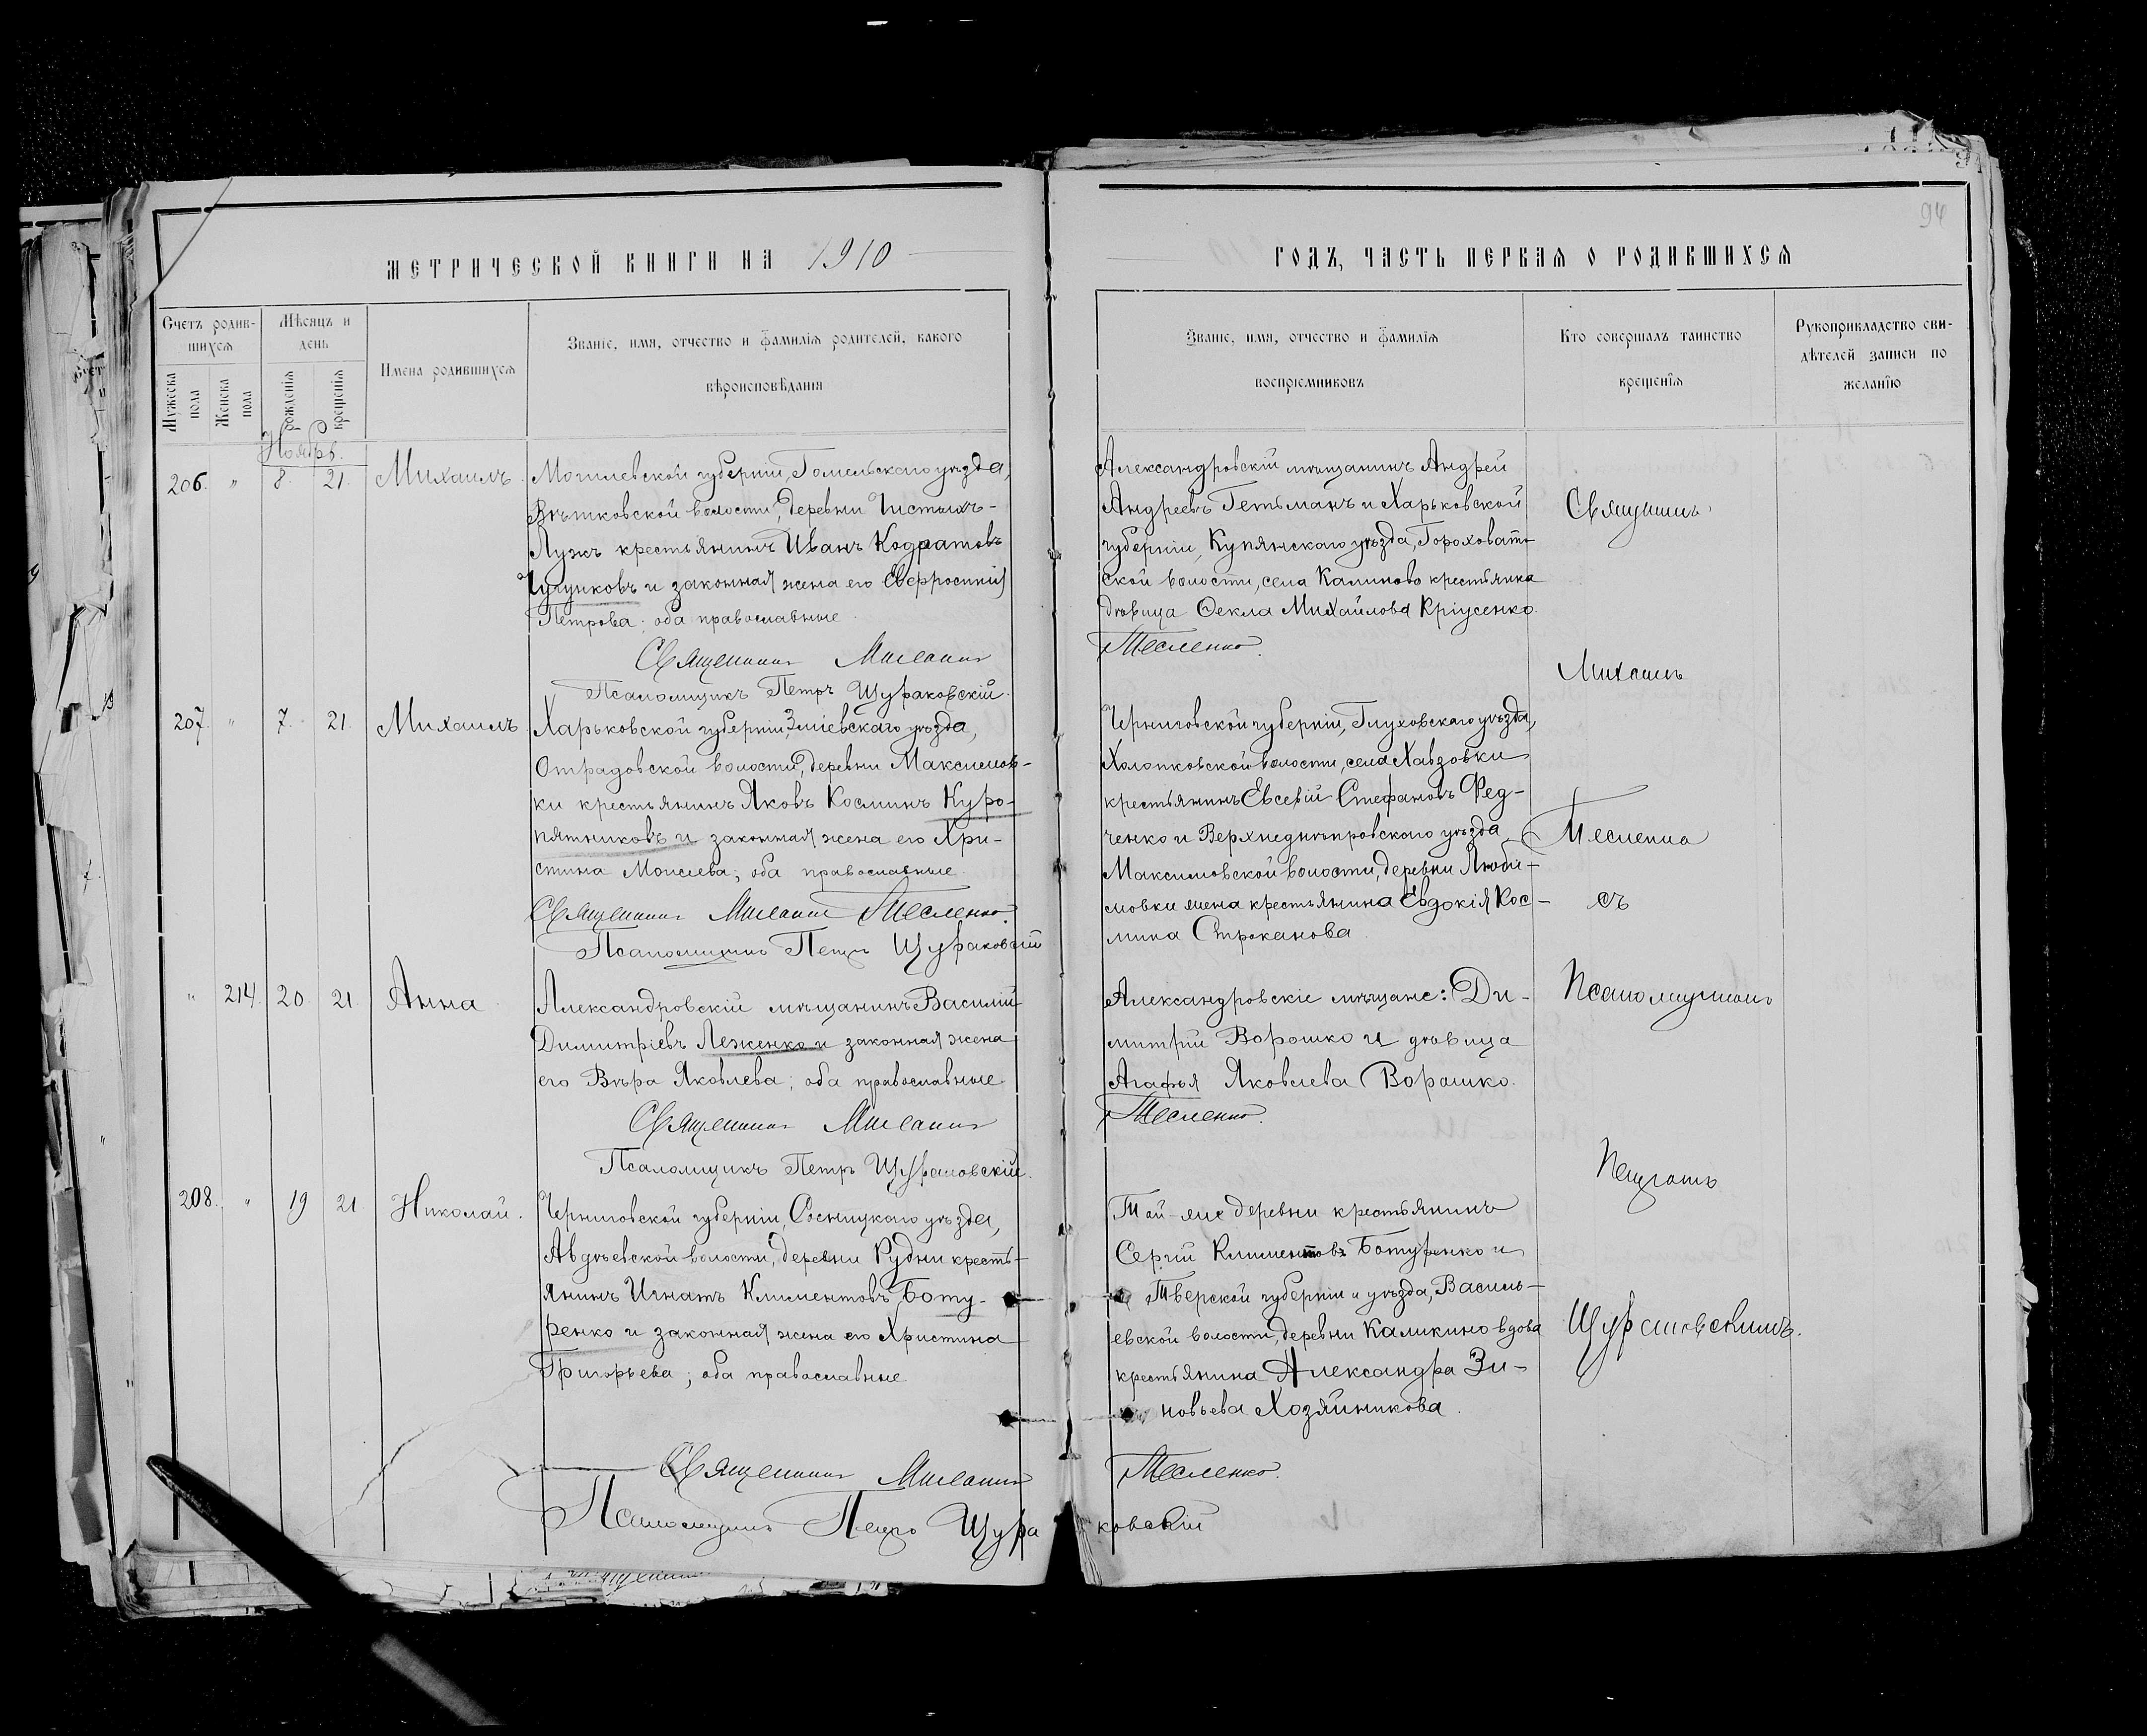 94
МЕТРИЧЕСКОЙ КНИГИ НА 1910
ГОДЪ, ЧАСТЬ ПЕРВАЯ О РОДИВШИХСЯ
Счетъ родив-
шихся
Мужеска пола
Женска пола
Мѣсяцъ и
день
рожденія
крещенія
Имена родившихся
Званіе, имя, отчество и фамилія родителей, какого
вѣроисповѣданія
Званіе, имя, отчество и фамилія
воспріемниковъ
Кто совершалъ таинство
крещенія
Рукоприкладство сви-
дѣтелей записи по
желанію
Ноябрь.
206. " 8. 21. Михаилъ.
Могилевской губерніи, Гомельскаго уѣзда,
Вѣтковской волости, деревни Чистыхъ-
Лужъ крестьянинъ Иванъ Кодратовъ
Чугунковъ и законная жена его Евфросинія
Петрова; оба православные.
Священникъ Михаилъ
Псаломщикъ Петръ Щураковскій.
Александровскій мѣщанинъ Андрей
Андреевъ Гетьманъ и Харьковской
губерніи, Купянскаго уѣзда, Гороховат-
ской волости, села Калиново крестьянка
дѣвица Ѳекла Михайлова Кріусенко.
Тесленко.
207. " 7. 21. Михаилъ.
Харьковской губерніи, Зміевскаго уѣзда,
Отрадовской волости, деревни Максимов-
ки крестьянинъ Яковъ Косминъ Куро-
пятниковъ и законная жена его Хри-
стина Моисеева; оба православные.
Священникъ Михаилъ Тесленко.
Псаломщикъ Петръ Щураковскій
Черниговской губерніи, Глуховскаго уѣзда,
Холопковской волости, села Хавзовки
крестьянинъ Евсевій Стефановъ Фед-
ченко и Верхнеднѣпровскаго уѣзда
Максимовской волости, деревни Люби-
мовки жена крестьянина Евдокія Кос-
мина Строканова.
" 214. 20. 21. Анна
Александровскій мѣщанинъ Василій
Димитріевъ Леженко и законная жена
его Вѣра Яковлева; оба православные.
Священникъ Михаилъ
Псаломщикъ Петръ Щураковскій.
Александровскіе мѣщане: Ди-
митрій Ворошко и дѣвица
Агафья Яковлева Ворошко.
Тесленко.
208. " 19 21. Николай.
Черниговской губерніи, Сосницкаго уѣзда,
Авдѣевской волости, деревни Рудни кресть-
янинъ Игнатъ Климентовъ Боту-
ренко и законная жена его Христина
Григорьева; оба православные.
Священникъ Михаилъ
Псаломщикъ Петръ Щура
Той-же деревни крестьянинъ
Сергій Климентовъ Ботуренко и
Тверской губерніи и уѣзда, Василь-
евской волости, деревни Каликино вдова
крестьянина Александра Зи-
новьева Хозяйникова.
Тесленко.
ковскій
Священникъ
Михаилъ
Тесленко
съ
Псаломщикомъ
Петромъ
Щураковскимъ.